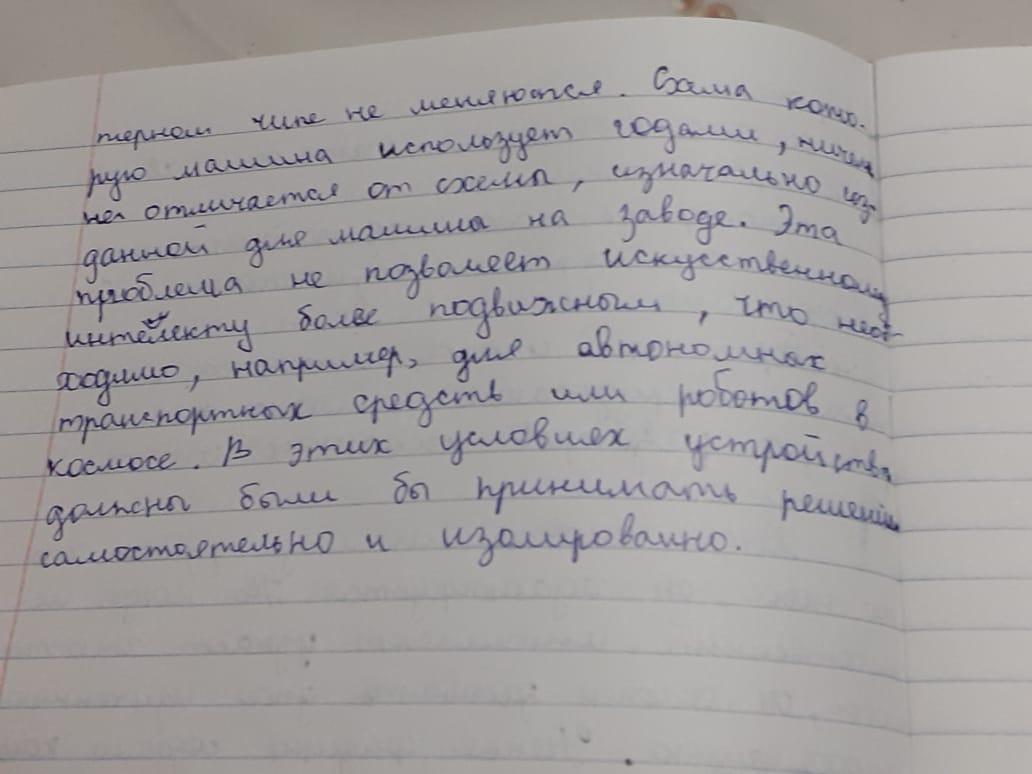 терном чипе не меняются. Схема кото-
рую машина использует годами, ничем
не отличается от схемы, изначально из-
данной для машина на заводе. Эта
проблема не позволяет искусственному
интелекту более подвижным, что необ-
ходимо, например, для автономных
транспортных средств или роботов в
космосе. В этих условиях устройства
должны были бы принимать решения
самостоятельно и изолированно.